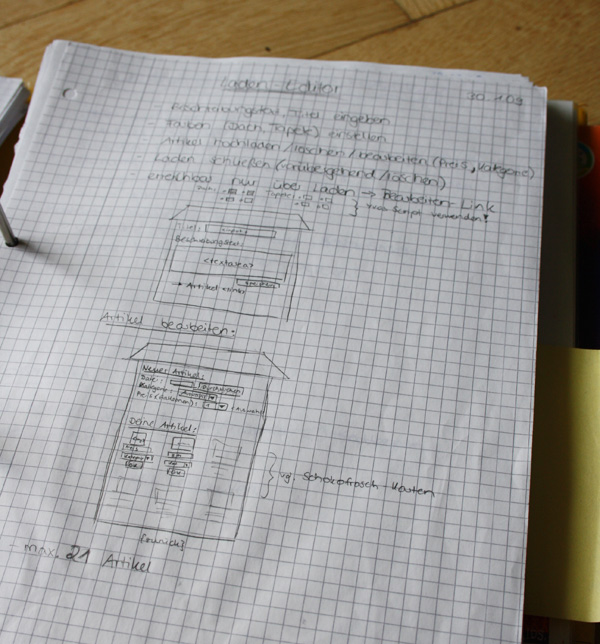 Laden-Editor
30.1.09
- Beschreibungstext, Titel eingeben
- Farben (Dach, Tapete) einstellen
- Artikel hochladen/löschen/bearbeiten (Preis, Kategorie)
- Laden schließen (vorübergehend/löschen)
- erreichbar nur über Laden → Bearbeiten-Link
Dach: Tapete:
Script verwenden!
Titel:
Beschreibungstext:
<textarea>
→ Artikel
Artikel bearbeiten:
Neuer Artikel:
Datei: Durchsuchen
Kategorie:
Preis
Deine Artikel:
vgl. Schokofrosch-Karten
[zurück]
- max. 21 Artikel